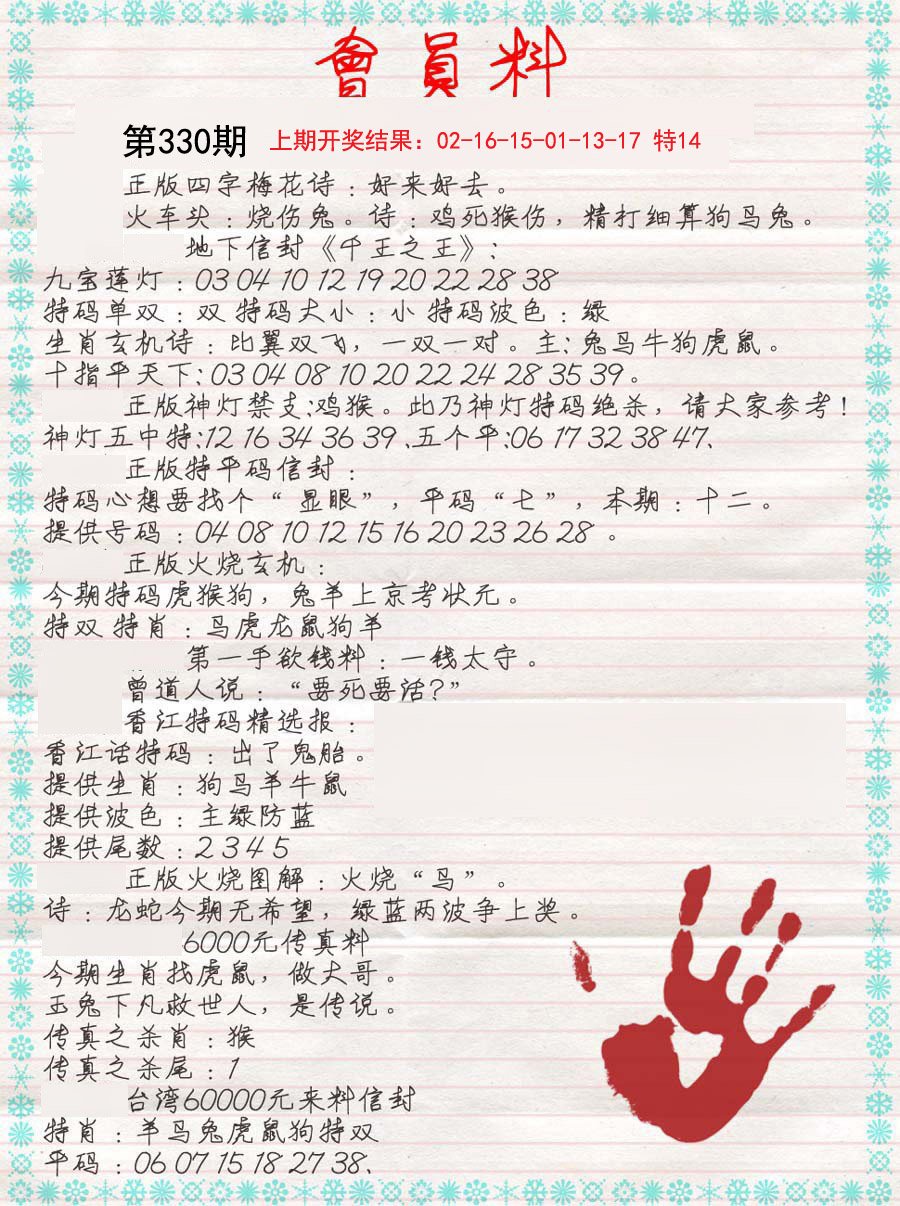 會員料
第330期 上期开奖结果：02-16-15-01-13-17 特14
正版四字梅花诗：好来好去。
火车头：烧伤兔。诗：鸡死猴伤，精打细算狗马兔。
地下信封《千王之王》：
九宝莲灯：03 04 10 12 19 20 22 28 38
特码单双：双 特码大小：小 特码波色：绿
生肖玄机诗：比翼双飞，一双一对。主：兔马牛狗虎鼠。
十指平天下：03 04 08 10 20 22 24 28 35 39。
正版神灯禁支：鸡猴。此乃神灯特码绝杀，请大家参考！
神灯五中特：12 16 34 36 39、五个平：06 17 32 38 47、
正版特平码信封：
特码心想要找个“显眼”，平码“七”，本期：十二。
提供号码：04 08 10 12 15 16 20 23 26 28 。
正版火烧玄机：
今期特码虎猴狗，兔羊上京考状元。
特双 特肖：马虎龙鼠狗羊
第一手欲钱料：一钱太守。
曾道人说：“要死要活？”
香江特码精选报：
香江话特码：出了鬼胎。
提供生肖：狗马羊牛鼠
提供波色：主绿防蓝
提供尾数：2 3 4 5
正版火烧图解：火烧“马”。
诗：龙蛇今期无希望，绿蓝两波争上奖。
6000元传真料
今期生肖找虎鼠，做大哥。
玉兔下凡救世人，是传说。
传真之杀肖：猴
传真之杀尾：1
台湾60000元来料信封
特肖：羊马兔虎鼠狗特双
平码：06 07 15 18 27 38、